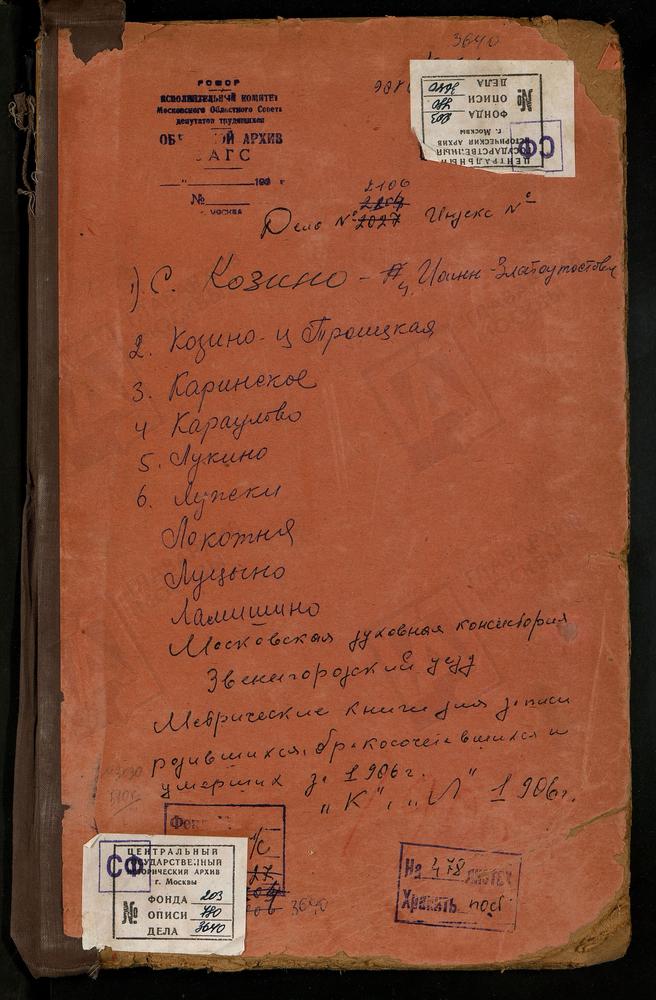 3640
РСФСР
ИСПОЛНИТЕЛЬНЫЙ КОМИТЕТ
Московского Областного Совета
депутатов трудящихся
ОБ ОЙ АРХИВ
ЗАГС
" " 193 г
№
г. МОСКВА
№
ДЕЛА 3640
ОПИСИ 780
ФОНДА 203
г. Москвы
ИСТОРИЧЕСКИЙ АРХИВ
ГОСУДАРСТВЕННЫЙ
ЦЕНТРАЛЬНЫЙ
СФ
2106
Дело № 2027 Индекс №
1). С. Козино - ц. Иоанн-Златоустовск
2. Козино - ц Троицкая
3. Каринское
4 Караулово
5. Лукино
6. Лужски
Локотня
Луцыно
Ламишино
Московская духовная консистория
Звенигородский уезд
Метрические книги для записи
родившихся, бракосочетавшихся и
умерших за 1906г.
"К", "Л" 1906г.
Фон
3640
ЦЕНТРАЛЬНЫЙ
ГОСУДАРСТВЕННЫЙ
ИСТОРИЧЕСКИЙ АРХИВ
г. Москвы
СФ
№ ФОНДА 203
ОПИСИ 780
ДЕЛА 3640
На 478 листах
Хранить пост.